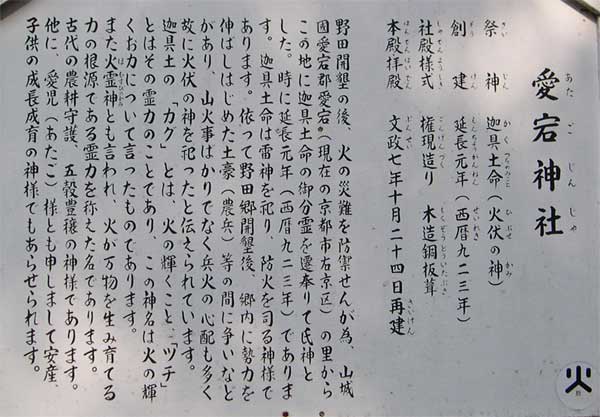 愛宕神社
あたごじんじゃ
祭神 迦具土命(火伏の神)
さいじん かぐつちのみこと ひぶせ かみ
創建 延長元年(西暦九二三年)
そうけん えんちょうがんねん せいれき
社殿様式 権現造り 木造銅板葺
しゃでんようしき ごんげんづく もくぞうどういたぶき
本殿拝殿 文政七年十月二十四日再建
ほんでんはいでん ぶんせい さいけん
野田開墾の後、火の災難を防禦せんが為、山城
国愛宕郡愛宕(現在の京都市右京区)の里から
この地に迦具土命の御分霊を遷奉りて氏神と
した。時に延長元年(西暦九二三年)でありま
す。迦具土命は雷神を祀り、防火を司る神様で
あります。依って野田郷開墾後、郷内に勢力を
伸ばしはじめた土豪(農兵)等の間に争いなど
があり、山火事ばかりでなく兵火の心配も多く
故に火伏の神を祀ったと伝えられています。
迦具土の「カグ」とは、火の輝くこと、「ヅチ」
とはその霊力のことであり、この神名は火の輝
くお力について言ったものであります。
また火霊神とも言われ、火が万物を生み育てる
力の根源である霊力を称えた名であります。
古代の農耕守護、五穀豊穣の神様であります。
他に、愛児(あたご)様とも申しまして安産、
子供の成長成育の神様でもあらせられます。
火